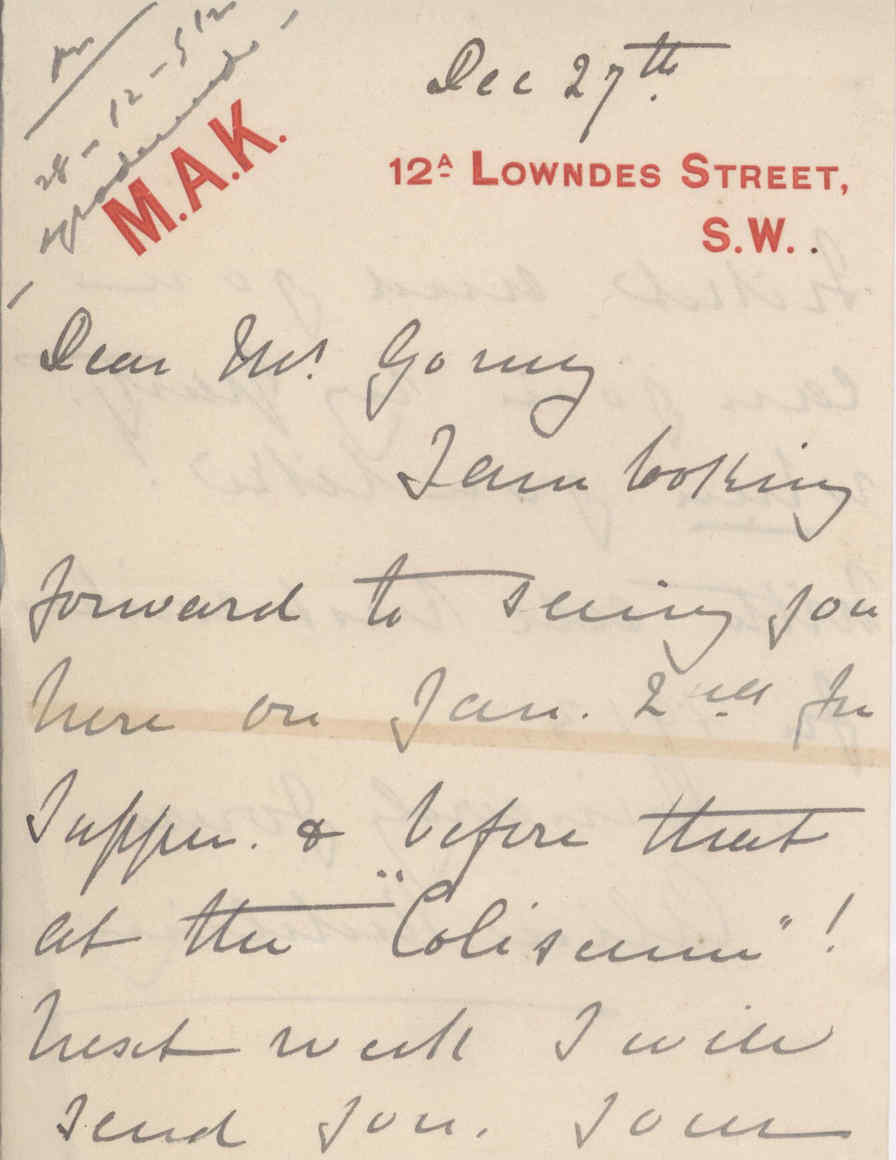 28-12-912
M.A.K.
Dec 27th.
12A LOWNDES STREET,
S.W..
Dear Mrs
I am looking
forward to seeing you
here on Jan. 2nd for
Supper. & before that
at the "Coliseum"!
Next week I will
send you. Your